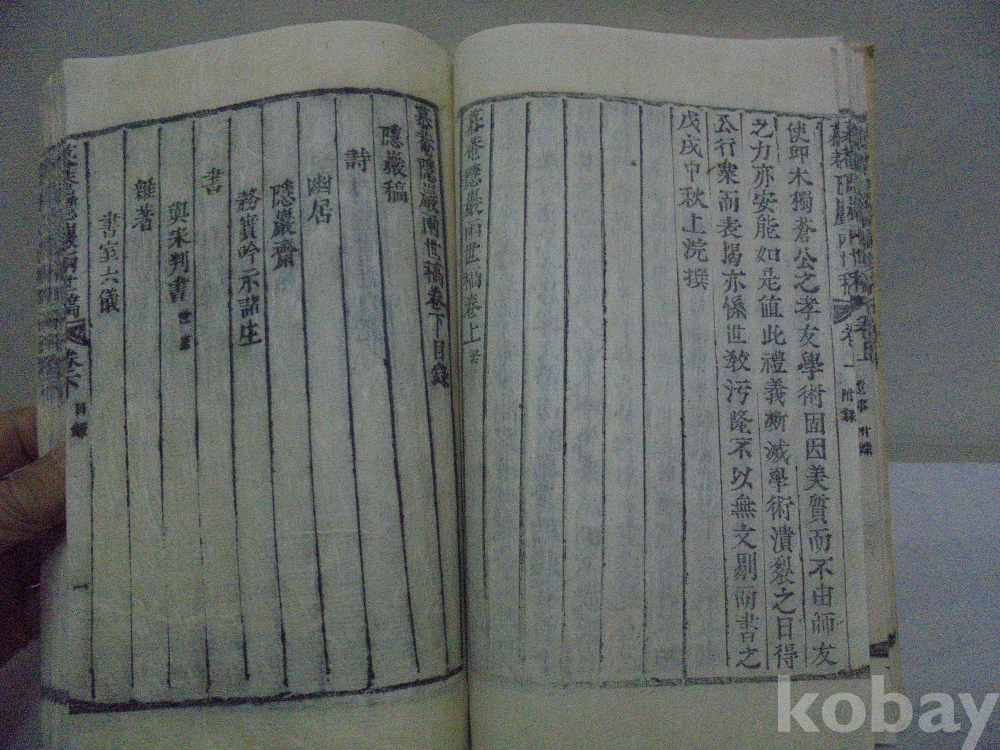 使即木獨蒼公之孝友學術固因美質而不由師友
之力亦安能如是値此禮義漸滅學術潰裂之日得
公行衆而表揭亦係世敎污隆不以無文剔啇書之
戊戌中秋上浣撰
慕菴隱巖兩世稿卷上 終
慕菴隱巖兩世稿卷下目錄
隱巖稿
詩
幽居
隱巖齋
務實吟示諸生
書
與宋判書
雜著
書室六儀
卷下
目錄
一
卷上
附錄
kobay